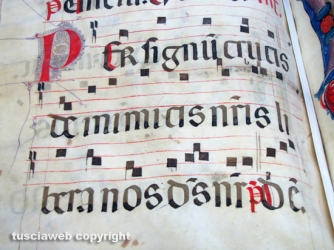 Per signū crucis
de inimicis nr̄is li
bera nos dn̄s nr̄ p̄ de ē.
tusciaweb copyright